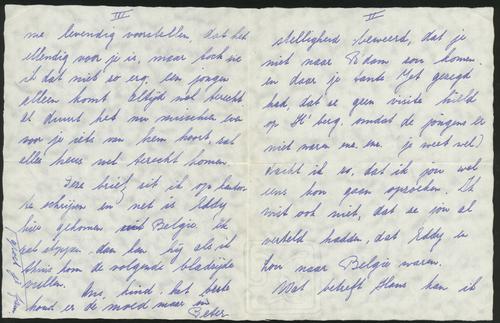 II
stelligheid beweerd, dat je
niet naar R'dam zou komen.
en daar je tante Jet gezegd
had, dat ze geen visite hield
op H'berg. omdat de jongens er
niet waren enz. enz. je weet wel)
dacht ik zo, dat ik jou wel
eens kon gaan opzoeken. Ik
wist ook niet, dat ze jou al
verteld hadden, dat Eddy en
kon naar België waren.
Wat betreft Hans kan ik
III
me levendig voorstellen, dat het
ellendig voor je is, maar toch zie
ik dat niet zo erg, een jongen
alleen komt altijd wel terecht
al duurt het nu misschien even
voor je iets van hem hoort, zal
alles heus wel terecht komen.
Deze brief zit ik op kantoor
te schrijven en net is Eddy
hier gekomen uit België. Ik
zal stoppen, dan kan hij als ik
thuis kom de volgende bladzijde
vullen.
Ans, kind, het beste
houd er de moed maar in
Peter